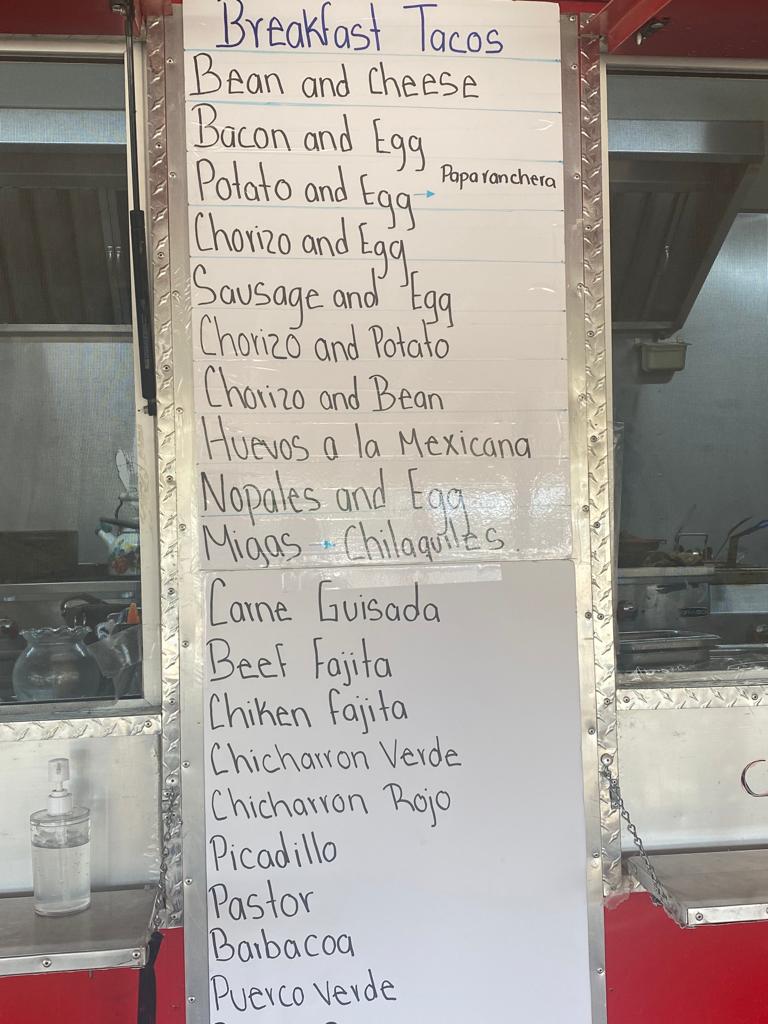 Breakfast Tacos
Bean and cheese
Bacon and Egg
Potato and Egg → Papa ranchera
Chorizo and Egg
Sausage and Egg
Chorizo and Potato
Chorizo and Bean
Huevos a la Mexicana
Nopales and Egg
Migas → Chilaquiles.
Carne Guisada
Beef Fajita
Chiken fajita
Chicharron Verde
Chicharron Rojo
Picadillo
Pastor
Barbacoa
Puerco Verde